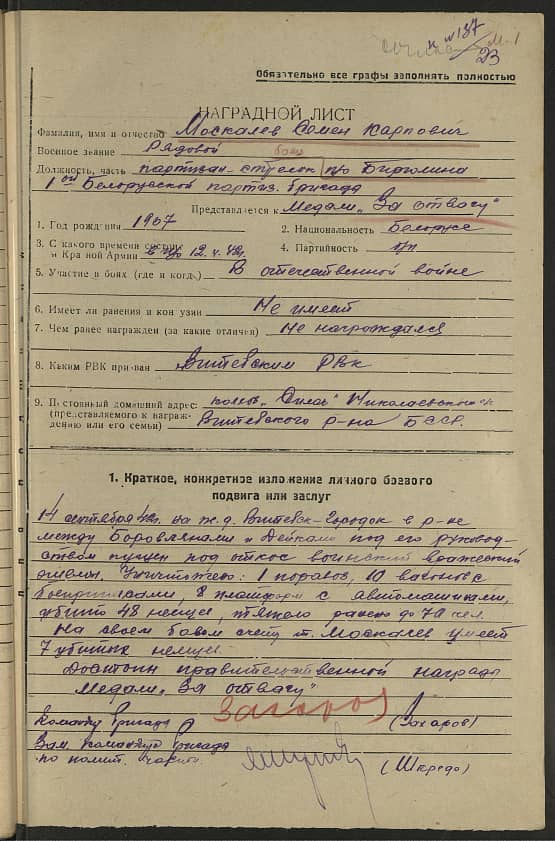 № 187
23
Обязательно все графы заполнять полностью
НАГРАДНОЙ ЛИСТ
Фамилия, имя и отчество Москалев Семен Карпович
Военное звание Рядовой боец
Должность, часть партизан-стрелок п/о Бирюлина
1ой Белорусской партиз. бригады
Представляется к Медали „За отвагу"
1. Год рождения 1907 2. Национальность Белорус
3. С какого времени состоит в Красной Армии в п/о 12.4.42г. 4. Партийность б/п
5. Участие в боях (где и когда) В отечественной войне
6. Имеет ли ранения и контузии Не имеет
7. Чем ранее награжден (за какие отличия) Не награждался
8. Каким РВК призван Витебским РВК
9. Постоянный домашний адрес: колхоз „Сила" Николаевский
(представляемого к награж-
дению или его семьи) Витебского р-на БССР.
1. Краткое, конкретное изложение личного боевого
подвига или заслуг
14 сентября 42г. на ж.д. Витебск-Городок в р-не
между Боровлянами и Дейками под его руковод-
ством пущен под откос воинский вражеский
эшелон. Уничтожено: 1 паровоз, 10 вагонов с
боеприпасами, 8 платформ с автомашинами,
убито 48 немцев, тяжело ранено до 70 чел.
На своем боевом счету т. Москалев имеет
7 убитых немцев.
Достоин правительственной награды
Медали „За отвагу"
Командир бригады (Захаров)
Зам. командира бригады
по полит. части (Шкредо)